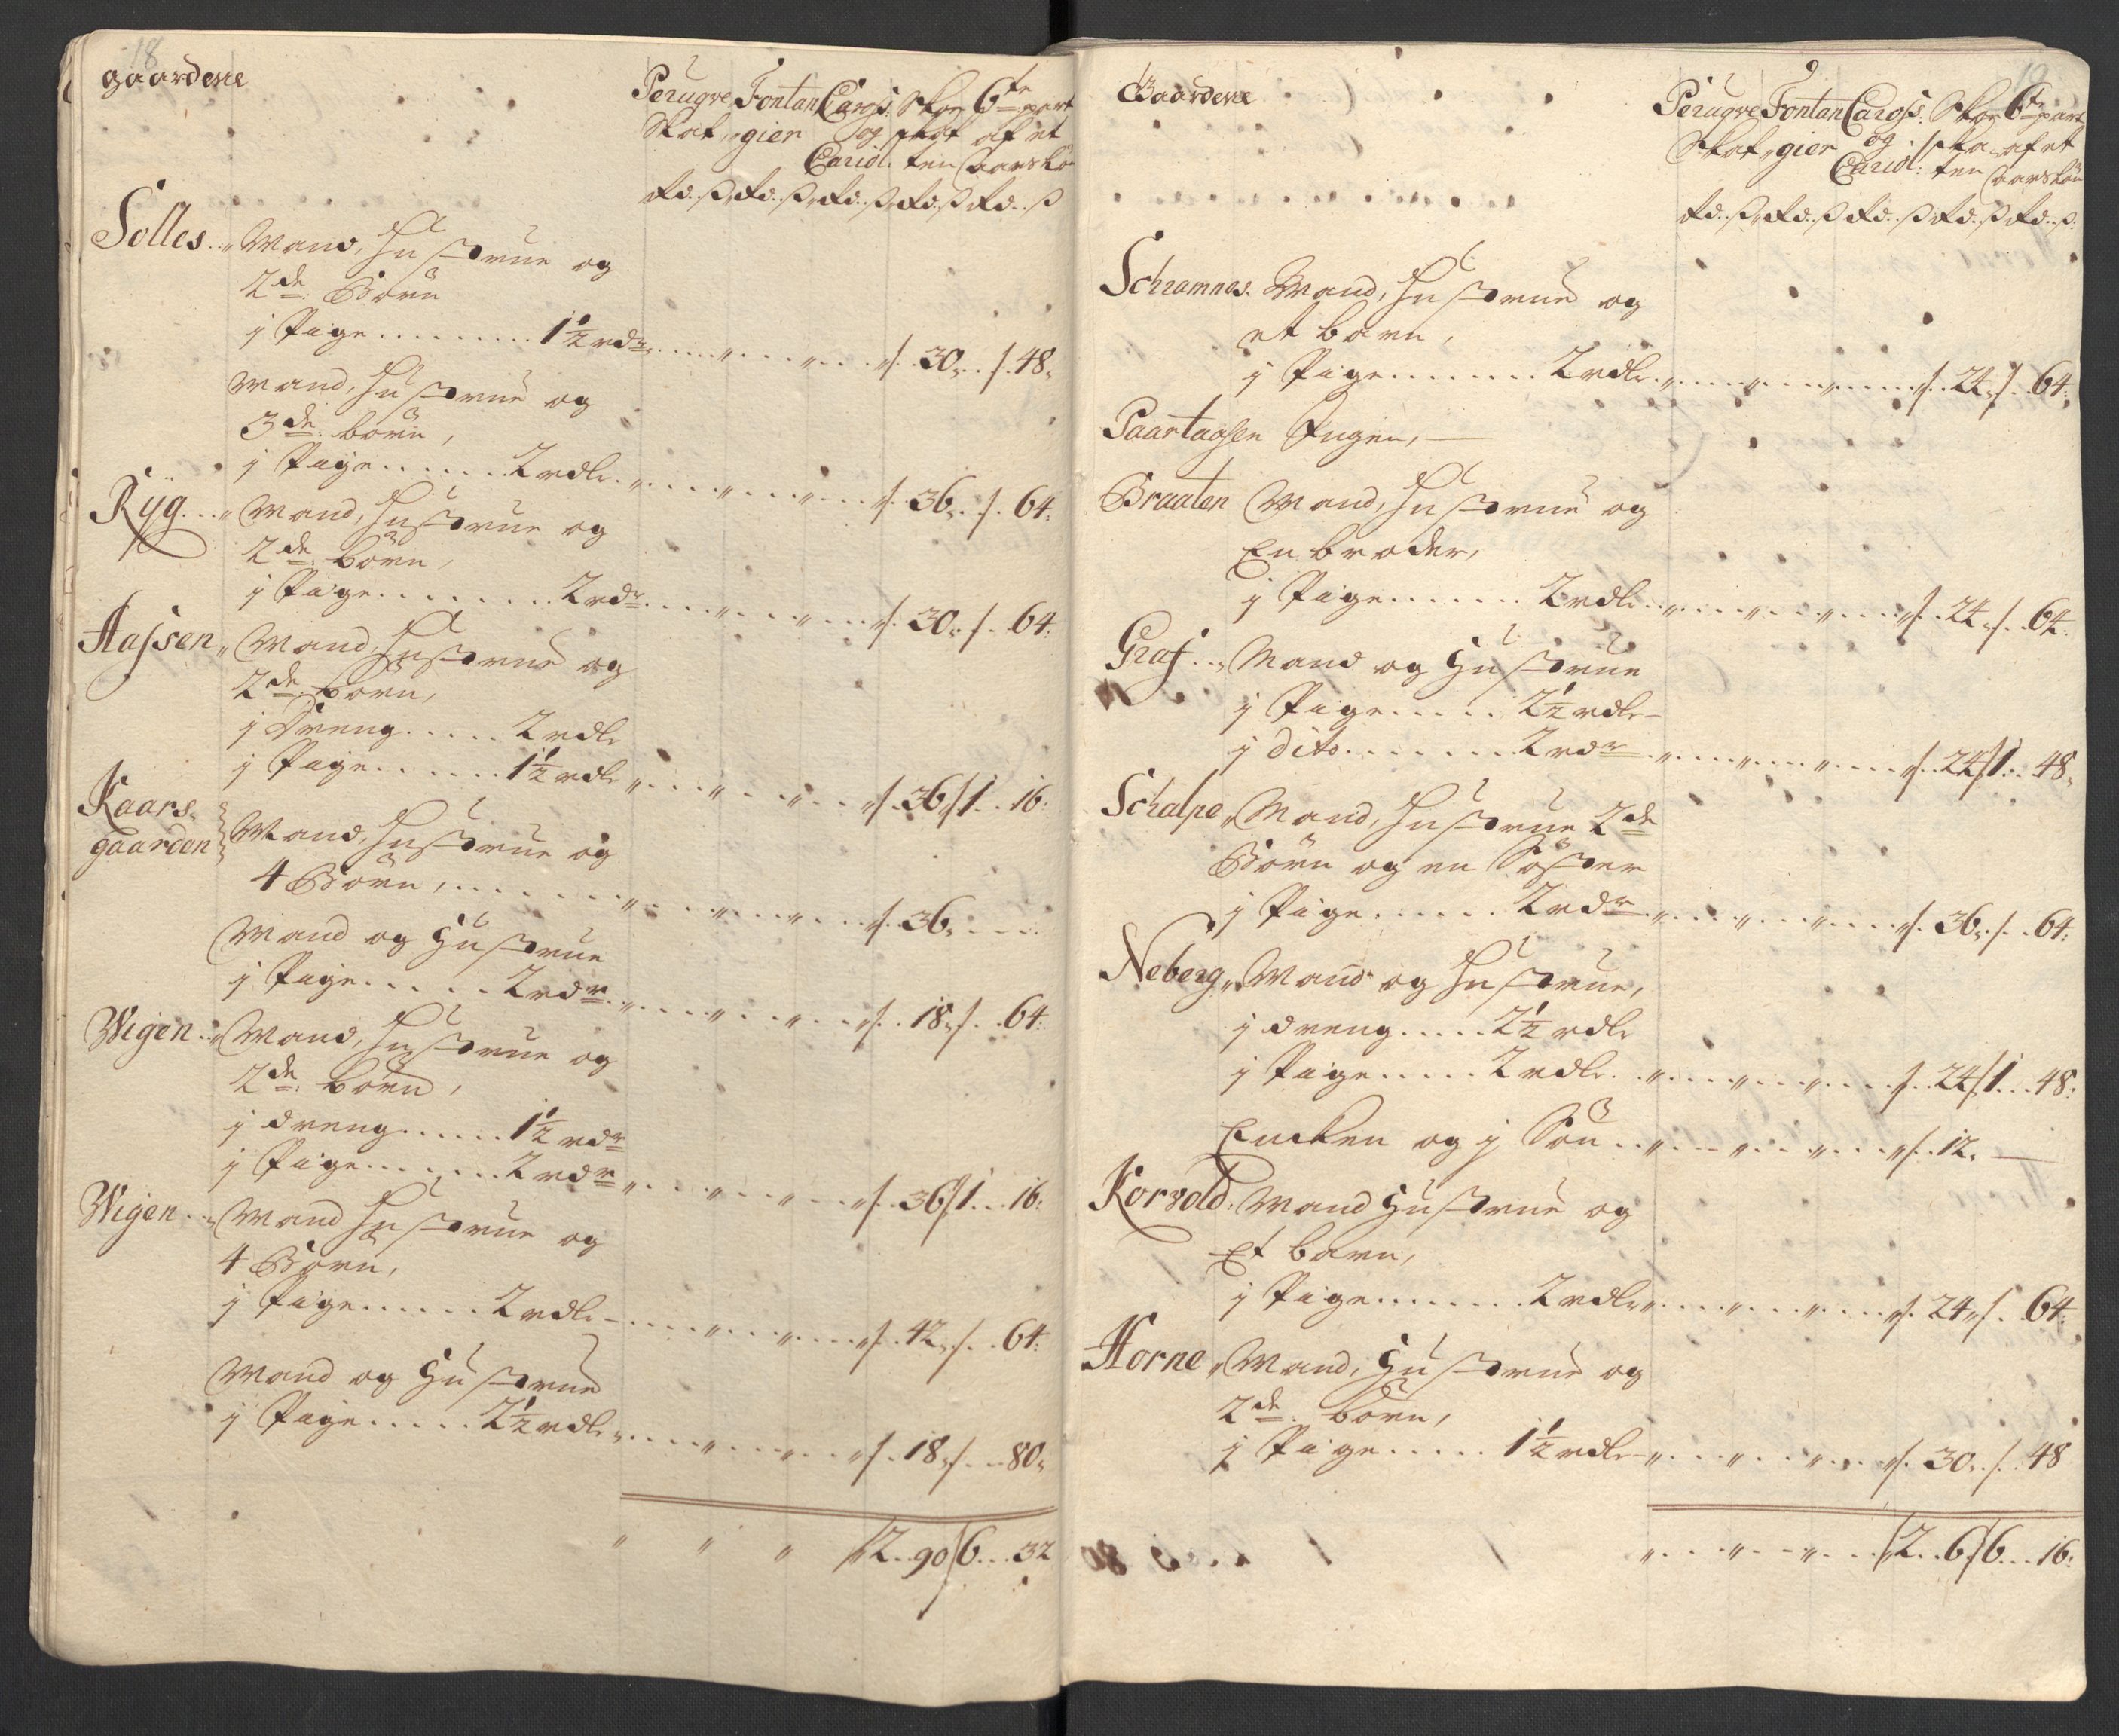 18
gaardene
Perugve Fontan Caross: Skoe 6te part
Skat, gier og skat af et
Cariol: ten Aars Løn
Rd: ß, Rd: ß, Rd: ß, Rd: ß Rd: ß
Solles Mand, Hustrue og
2de: Børn
j Pige 1½ rdr 30 48
Mand, Hustrue og
3de: børn,
j Pige 2 rdlr 36 64
Ryg Mand, Hustrue og
2de: børn,
j Pige 2 rdr 30 64
Aassen Mand, Hustrue og
2de børn,
j Dreng 2 rdlr
j Pige 1½ rdlr 36 1 16
Kaars-
gaarden Mand, Hustrue og
4 Børn, 36
Mand og Hustrue
j Pige 2 rdr 18 64
Wigen Mand, Hustrue og
2de: børn,
j dreng 1½ rdr
j Pige 2 rdr 36 1 16
Wigen Mand Hustrue og
4 Børn,
j Pige 2 rdlr 42 64
Mand og Hustrue
j Pige 2½ rdlr 18 80
2 90 6 32
19
Gaardene
Perugve Fontan Caross: Skoe 6te part
Skat, gier og ska af et
Cariol: ten Aars Løn
Rd: ß, Rd: ß Rd: ß Rd: ß Rd: ß
Schramnes Mand, Hustrue og
et barn,
j Pige 2 rdlr 24 64
Paartaasen Ingen,
Braaten Mand, Hustrue og
En broder,
j Pige 2 rdlr 24 64
Graf Mand og Hustrue
j Pige 2½ rdlr
j dito 2 rdr 24 1 48
Schalpe Mand, Hustrue 2de
Børn og en Søster
j Pige 2 rdr 36 64
Neberg Mand og Hustrue,
j dreng 2½ rdlr
j Pige 2 rdlr 24 1 48
Encken og j Søn 12
Korvold Mand Hustrue og
Et barn,
j Pige 2 rdlr 24 64
Horne Mand, Hustrue og
2de: børn,
j Pige 1½ rdlr 30 48
2 6 6 16